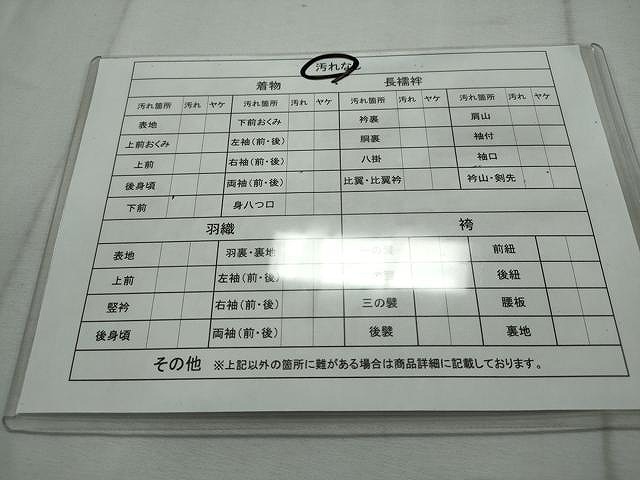 汚れなし
着物 長襦袢
汚れ箇所 汚れ ヤケ 汚れ箇所 汚れ ヤケ 汚れ箇所 汚れ ヤケ 汚れ箇所 汚れ ヤケ
表地 下前おくみ 衿裏 肩山
上前おくみ 左袖(前・後) 胴裏 袖付
上前 右袖(前・後) 八掛 袖口
後身頃 両袖(前・後) 比翼・比翼衿 衿山・剣先
下前 身八つ口
羽織 袴
表地 羽裏・裏地 前紐
上前 左袖(前・後) 後紐
竪衿 右袖(前・後) 三の襞 腰板
後身頃 両袖(前・後) 後襞 裏地
その他 ※上記以外の箇所に難がある場合は商品詳細に記載しております。